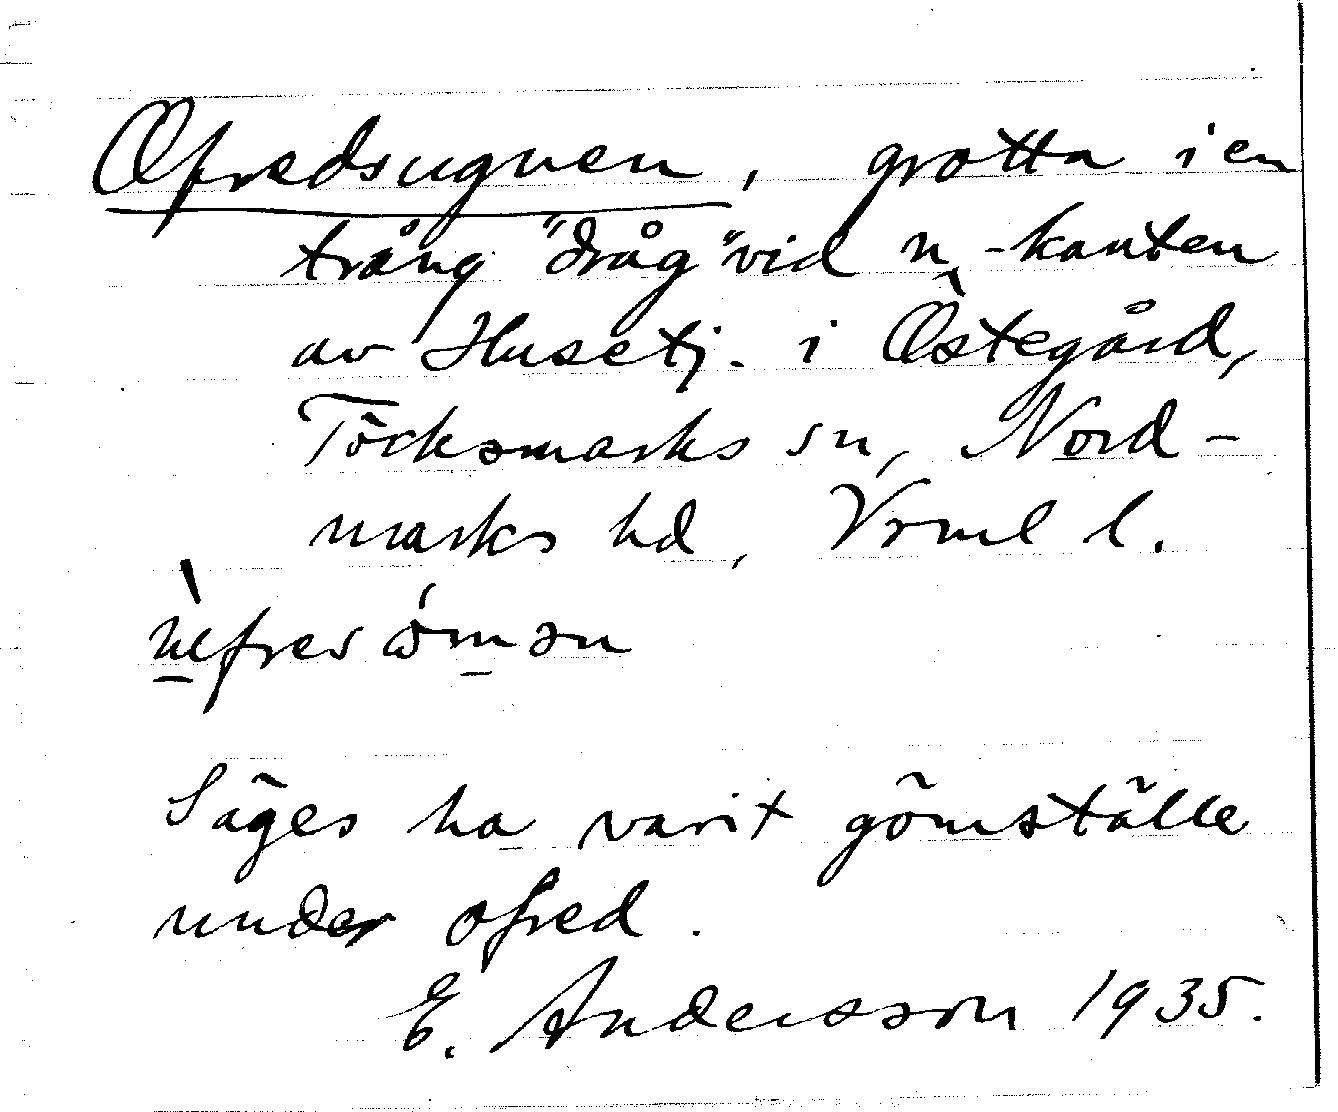 Ofredsugnen, grotta i en
trång "dråg" vid n.-kanten
av Husetj. i Östegård,
Töcksmarks sn, Nord-
marks hd, Vrml l.
Säges ha varit gömställe
under ofred.
E. Andersson 1935.